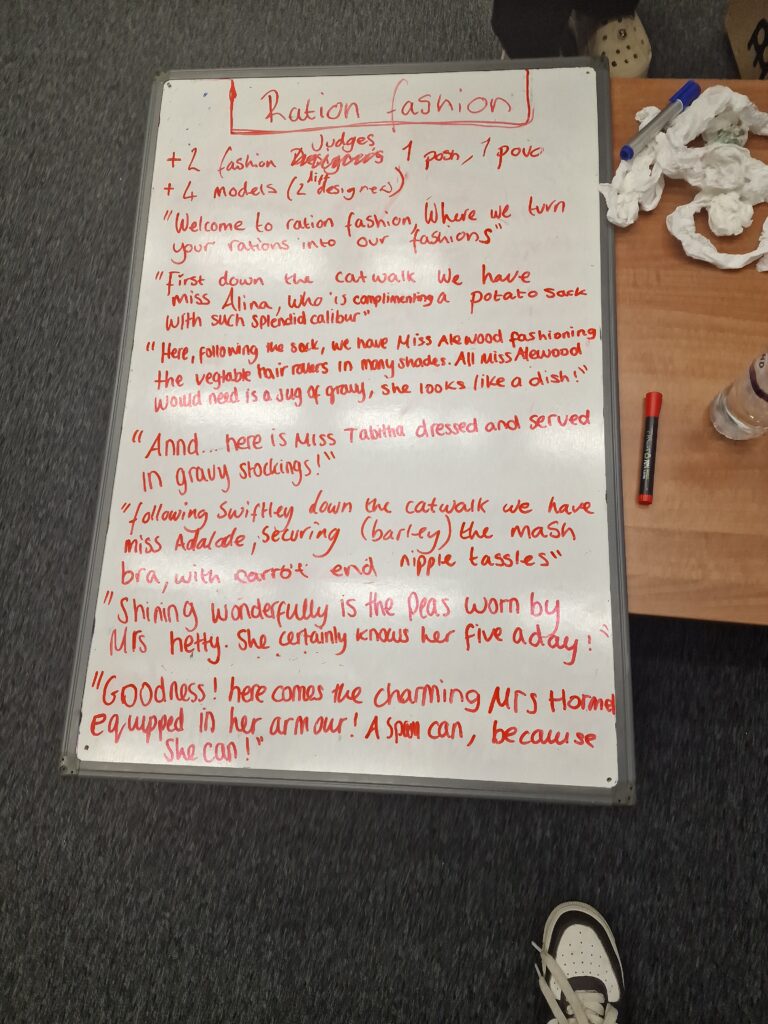 Ration fashion
Judges
+ 2 fashion Designers 1 posh, 1 povo
+ 4 models (2 diff designers)
"Welcome to ration fashion, Where we turn
your rations into our fashions"
"First down the catwalk we have
miss Alina, who is complimenting a potato sack
with such splendid calibur"
"Here, following the sack, we have Miss Alewood fashioning
the vegtable hair rollers in many shades. All Miss Alewood
would need is a jug of gravy, she looks like a dish!"
"Annd... here is Miss Tabitha dressed and served
in gravy stockings!"
"following Swiftley down the catwalk we have
miss Adalade, securing (barley) the mash
bra, with carrot end nipple tassles"
"Shining wonderfully is the Peas worn by
Mrs hetty. She certainly knows her five a day!"
"Goodness! here comes the charming Mrs Hormel
equipped in her armour! A spam can, because
she can!"